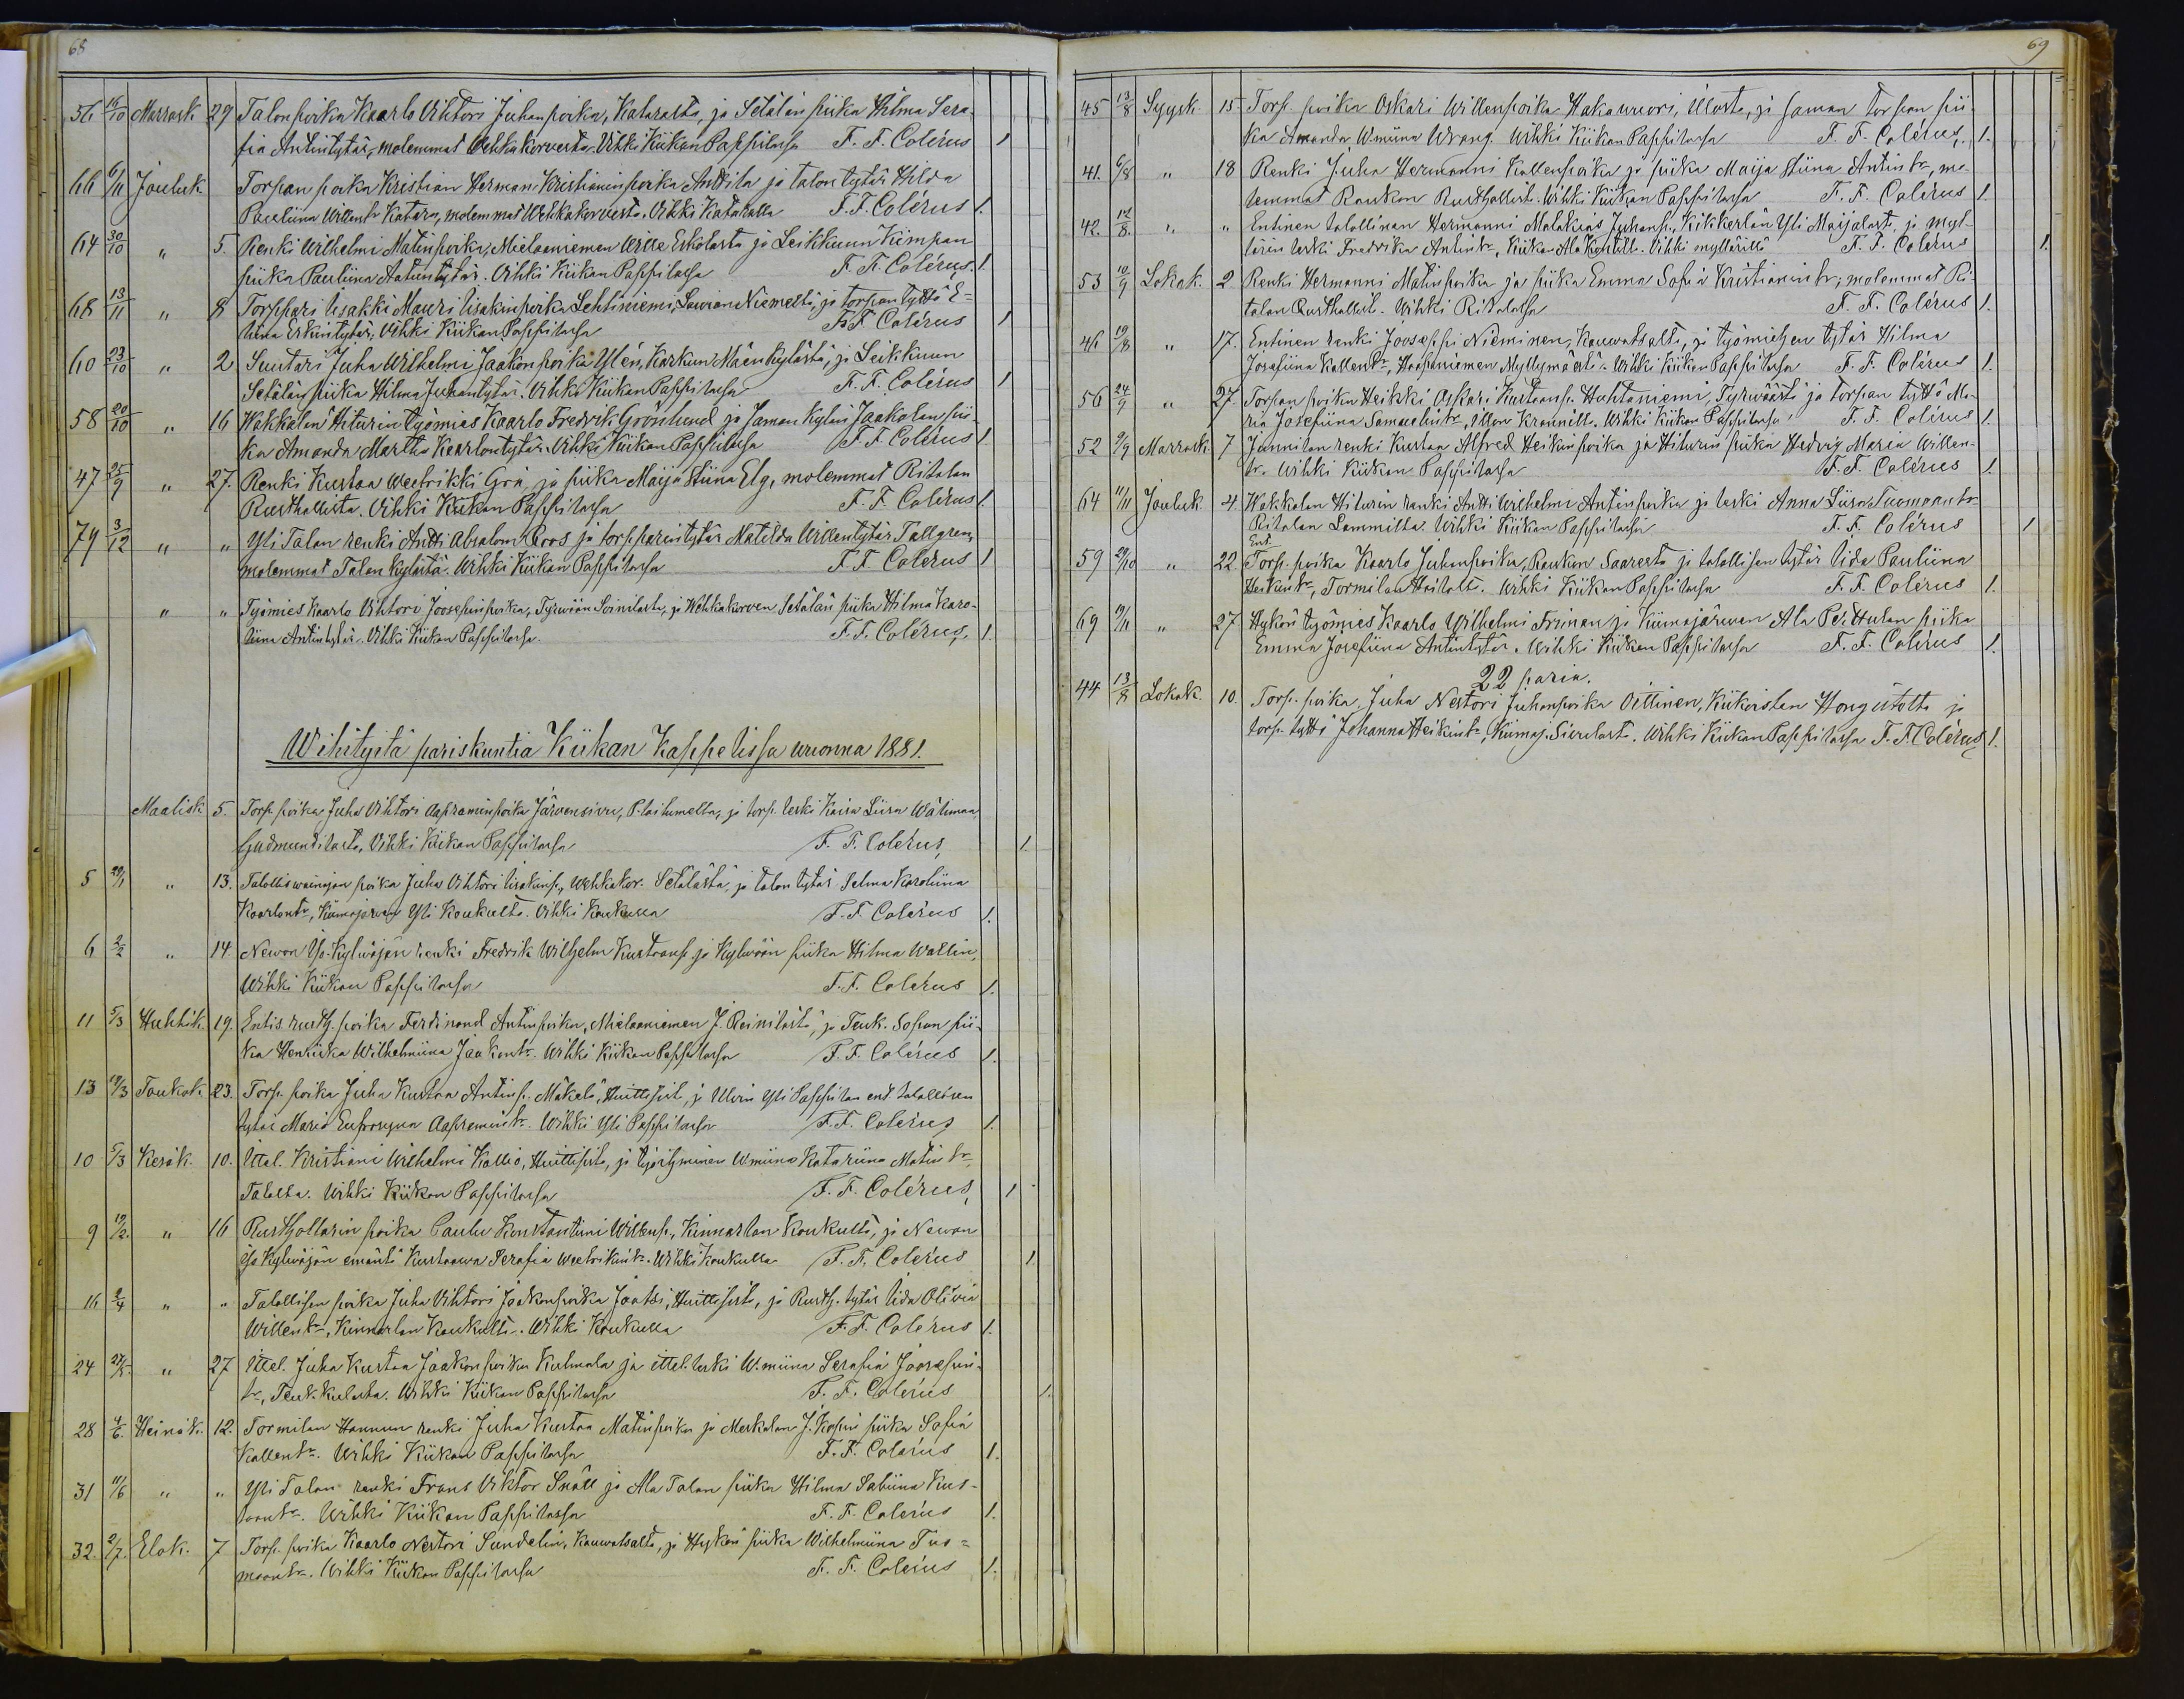 68
56 16/10 Marrask. 29 Talon poika Kaarlo Vihtori Juhanpoika, Katarasta, ja Setälän piika Hilma Sera-
fia Antintytär, molemmat Vehkakorvesta. Vihki Kiikan Pappilassa F. F. Colérus 1
66 6/11 Jouluk. Torpan poika Kristian Herman Kristianinpoika Anttila ja talon tytär Hilda
Pauliina Willentr Katara, molemmat Wehkakorvesta. Vihki Kataralla F. F. Colérus 1.
64 30/10 " 5. Renki Wilhelmi Matinpoika, Mielaaniemen Wille Erkolasta ja Leikkuun Kiimpan
piika Pauliina Antintytär. Vihki Kiikan Pappilassa F. F. Colérus. 1.
68 13/11 " 8 Torppari Iisakki Mauri Iisakinpoika Lehtiniemi, Lauvian Niemeltä, ja torpan tyttö E-
liina Erkintytär, Vihki Kiikan Pappilassa F. F. Colérus 1
60 23/10 " 2 Suutari Juha Wilhelmi Jaakonpoika Ylén, Karkun Mäenkylästä, ja Leikkuun
Setälän piika Hilma Juhantytär. Vihki Kiikan Pappilassa F. F. Colérus 1
58 20/10 " 16 Wakkalan Hiturin työmies Kaarlo Fredrik Grönlund ja saman kylän Jaakolan pii-
ka Amanda Martha Kaarlontytär. Vihki Kiikan Pappilassa F. F. Colérus 1
47 25/9 " 27. Renki Kustaa Weetrikki Grä ja piika Maija Stiina Elg, molemmat Ritalan
Rusthollista. Vihki Kiikan Pappilassa F. F. Colérus 1.
79 3/12 " " Yli Talan renki Antti Absalom Roos ja torpparintytär Matilda Willentytär Tallgren,
molemmat Talankylästä. Wihki Kiikan Pappilassa F. F. Colérus 1
" " Työmies Kaarlo Vihtori Joosefinpoika, Tyrwään Soinilasta, ja Wehkakorven Setälän piika Hilma Karo-
liina Antintytär. Vihki Kiikan Pappilassa F. F. Colérus, 1.
Wihityitä pariskuntia Kiikan Kappelissa wuonna 1881.
Maalisk. 5. Torp. poika Juha Vihtori Aapraminpoika Järvensivu, P. laitumelta, ja torp. leski Kaisa Liisa Wälimaa,
Gudmundilasta, Vihki Kiikan Pappilassa F. F. Colérus, 1.
5 29/1 " 13. Talollis wainajan poika Juha Vihtori Iisakinp., Wehkakor. Setälästä, ja talon tytär Selma Karoliina
Kaarlontr, Kiimajärven Yli Koukulta. Vihki Koukulla F. F. Colérus 1.
6 2/2 " 14 Newon Yö-Kylwäjän renki Fredrik Wilhelm Kustaanp. ja Kylwään piika Hilma Wallin,
Wihki Kiikan Pappilassa F. F. Colérus 1.
11 5/3 Huhtik. 19. Entis. rusth. poika Ferdinand Antinpoika, Mielaaniemen J. Reinilästä, ja Teuk. Sopan pii-
ka Henriika Wilhelmiina Jaakontr. Wihki Kiikan Pappilassa F. F. Colérus 1.
13 19/3 Toukok. 23. Torp. poika Juha Kustaa Antinp. Mäkelä, Huittisist, ja Ulvin Yli Pappilan ent. talollisen
tytär Maria Eufrosyna Aapramintr. Wihki Yli Pappilassa F. F. Colérus 1.
10 5/3 Kesäk. 10. Ittel. Kristiani Wilhelmi Kallio, Huittisista, ja työihminen W.miina Katariina Matintr,
Talalta. Wihki Kiikan Pappilassa F. F. Colérus, 1
9 19/2. " 16 Rusthollarin poika Paulu Konstantiini Willenp., Kinnarlan Koukulta, ja Newon
Yö Kylwäjän emäntä Kustaawa Serafia Weetrikintr. Wihki Koukulla F. F. Colérus 1
16 2/4 " " Talollisen poika Juha Vihtori Jaakonpoika Jaatsi, Huittisista, ja Rusth. tytär Iida Olivia
Willentr, Kinnarlan Koukulta. Wihki Koukulla F. F. Colérus 1.
24 27/5. " 27 Ittel. Juha Kustaa Jaakonpoika Kulmala ja ittel. leski W.miina Serafia Joosefin-
tr, Teuk. Kulasta. Wihki Kiikan Pappilassa F. F. Colérus 1.
28 4/6. Heinäk. 12. Tormilan Hannun renki Juha Kustaa Matinpoika ja Meskalan J. Kapin piika Sofia
Kallentr. Wihki Kiikan Pappilassa F. F. Colérus 1.
31 11/6 " " Yli Talan renki Frans Viktor Snäll ja Ala Talan piika Hilma Sabiina Kus-
taantr. Wihki Kiikan Pappilassa F. F. Colérus 1.
32. 2/7. Elok. 7 Torp. poika Kaarlo Nestori Sundelin, Kauwatsalta, ja Hykön piika Wilhelmiina Tuo=
maantr. Vihki Kiikan Pappilassa F. F. Colérus 1.
69
45 13/8 Syysk. 15 Torp. poika Oskari Willenpoika Hakawuori, Illosta, ja saman torpan pii-
ka Amanda W.miina Wrang. Wihki Kiikan Pappilassa F. F. Colérus, 1.
41. 6/8 " 18 Renki Juha Hermanni Kallenpoika ja piika Maija Stiina Antintr, mo-
lemmat Raukon Rusthollist. Wihki Kiikan Pappilassa F. F. Colérus 1.
42. 12/8. " " Entinen talollinen Hermanni Malakias Juhanp., Kikkerlän Yli Maijalast, ja myl-
lärin leski Fredrika Antintr, Kiikan Ala Köntilt. Vihki myllärillä F. F. Colérus 1.
53 10/9 Lokak. 2 Renki Hermanni Matinpoika ja piika Emma Sofia Kristianintr; molemmat Ri-
talan Rusthollist. Wihki Ritalassa F. F. Colérus 1.
46 19/8 " 17. Entinen renki Jooseppi Nieminen, Kauwatsalta, ja työmiehen tytär Hilma
Josefiina Kallentr, Haapaniemen Myllymäeltä. Wihki Kiikan Pappilassa F. F. Colérus 1.
56 24/9 " 27. Torpan poika Heikki Oskari Kustaanp. Huhtaniemi, Tyrwäästä ja torpan tyttö Ma-
ria Josefiina Samuelintr, Illon Krannilt. Wihki Kiikan Pappilassa F. F. Colérus 1.
52 9/9 Marrask. 7 Junnilan renki Kustaa Alfred Heikinpoika ja Hiturin piika Hedvig Maria Willen-
tr. Wihki Kiikan Pappilassa F. F. Colérus 1.
64 11/11 Jouluk. 4. Wakkalan Hiturin renki Antti Wilhelmi Antinpoika ja leski Anna Liisa Tuomaantr
Ritalan Lammilta. Wihki Kiikan Pappilassa F. F. Colérus 1
Ent.
59 29/10 " 22 Torp. poika Kaarlo Juhanpoika, Raukon Saaresta ja talollisen tytär Iida Pauliina
Heikintr, Tormilan Heitolt. Wihki Kiikan Pappilassa F. F. Colérus 1.
69 19/11 " 27 Hykön työmies Kaarlo Wilhelmi Friman ja Kiimajärwen Ala Pietttulan piika
Emma Josefiina Antintytär. Wihki Kiikan Pappilassa F. F. Colérus 1.
22 paria.
44 13/8 Lokak. 10. Torp. poika Juha Nestori Juhanpoika Oittinen, Kiikoisten Hongistolta ja
torp. tyttö Johanna Heikintr, Kiimaj. Sierilast. Wihki Kiikan Pappilassa F. F. Colérus 1.